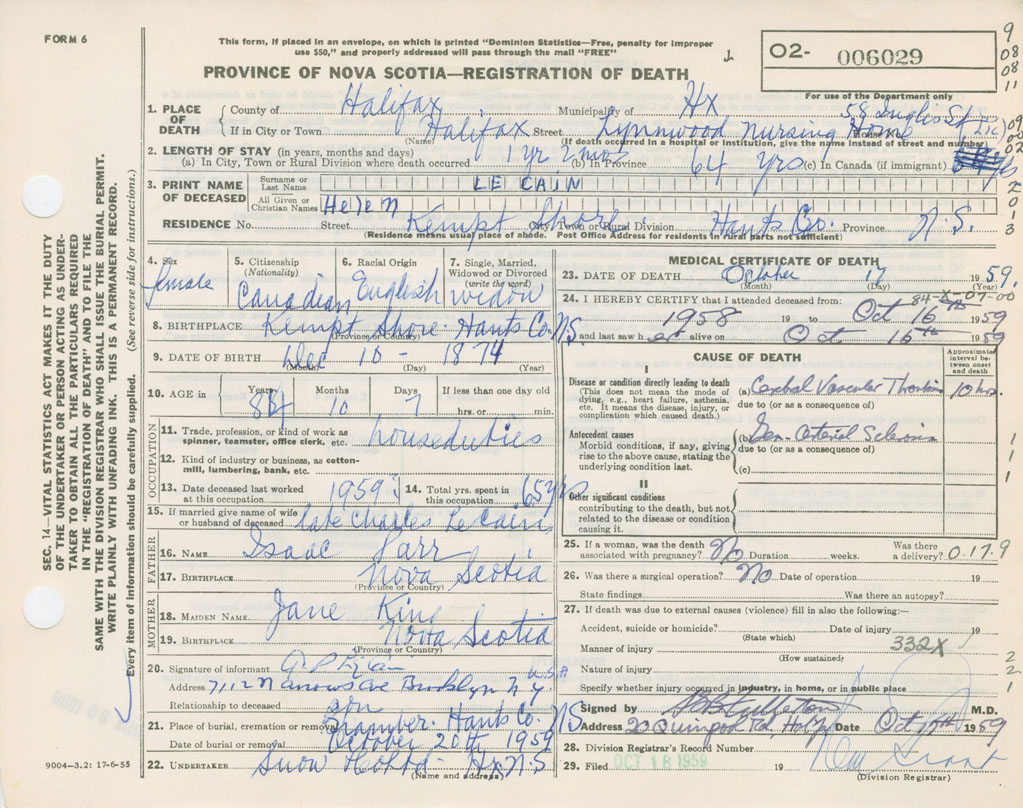 FORM 6
This form, if placed in an envelope, on which is printed "Dominion Statistics—Free, penalty for improper
use $50," and properly addressed will pass through the mail "FREE"
O2- 006029
For use of the Department only
PROVINCE OF NOVA SCOTIA—REGISTRATION OF DEATH
9
08
08
11
1. PLACE OF DEATH
County of Halifax Municipality of Hx 58 Inglis St
If in City or Town Halifax Street Lynnwood Nursing Home (Lic) House No.
(Name) (If death occurred in a hospital or institution, give the name instead of street and number)
09
00
02
2. LENGTH OF STAY (in years, months and days)
(a) In City, Town or Rural Division where death occurred 1 yr 2 mos (b) In Province 64 yrs (c) In Canada (if immigrant)
3. PRINT NAME OF DECEASED
Surname or Last Name LE CAIN
All Given or Christian Names Helen
2
0
1
3
RESIDENCE No. Street Kempt Shore City, Town or Rural Division Hants Co. Province N.S.
(Residence means usual place of abode. Post Office Address for residents in rural parts not sufficient)
4. Sex female
5. Citizenship (Nationality) Canadian
6. Racial Origin English
7. Single, Married, Widowed or Divorced (write the word) widow
8. BIRTHPLACE Kempt Shore Hants Co. NS.
(Province or Country)
9. DATE OF BIRTH Dec 10 - 1874
(Month) (Day) (Year)
10. AGE in Years 84 Months 10 Days 7 If less than one day old hrs. or min.
OCCUPATION
11. Trade, profession, or kind of work as spinner, teamster, office clerk, etc. houseduties
12. Kind of industry or business, as cotton-mill, lumbering, bank, etc.
13. Date deceased last worked at this occupation 1959
14. Total yrs. spent in this occupation 65 yrs
15. If married give name of wife or husband of deceased late Charles Le Cain
FATHER
16. NAME Isaac Parr
17. BIRTHPLACE Nova Scotia
(Province or Country)
MOTHER
18. MAIDEN NAME Jane King
19. BIRTHPLACE Nova Scotia
(Province or Country)
20. Signature of informant
Address Brooklyn N.Y. U.S.A
Relationship to deceased son
21. Place of burial, cremation or removal Hants Co. NS
Date of burial or removal October 20th 1959
22. UNDERTAKER Snow Hx N.S
(Name and address)
9004—3.2: 17-6-55
MEDICAL CERTIFICATE OF DEATH
23. DATE OF DEATH October 17 1959.
(Month) (Day) (Year)
84-X-07-00
24. I HEREBY CERTIFY that I attended deceased from:
1958 19 to Oct 16th 1959
and last saw her alive on Oct 15th 1959
CAUSE OF DEATH
Approximate interval between onset and death
I
Disease or condition directly leading to death
(This does not mean the mode of dying, e.g., heart failure, asthenia, etc. It means the disease, injury, or complication which caused death.)
(a) Cerebral Vascular Thrombosis 10 hrs.
due to (or as a consequence of)
Antecedent causes
Morbid conditions, if any, giving rise to the above cause, stating the underlying condition last.
(b) Gen. Arterial Sclerosis
due to (or as a consequence of)
(c)
1
1
1
II
Other significant conditions
contributing to the death, but not related to the disease or condition causing it.
25. If a woman, was the death associated with pregnancy? No Duration weeks. Was there a delivery? 0.17.9
26. Was there a surgical operation? No Date of operation 19
State findings Was there an autopsy?
27. If death was due to external causes (violence) fill in also the following:—
Accident, suicide or homicide? Date of injury 19
(State which)
Manner of injury 332X
(How sustained)
Nature of injury
Specify whether injury occurred in industry, in home, or in public place
2
2
1
Signed by M.D.
Address Quinpool Rd. Date Oct 1959
28. Division Registrar's Record Number
29. Filed OCT 18 1959 19
(Division Registrar)
SEC. 14—VITAL STATISTICS ACT MAKES IT THE DUTY
OF THE UNDERTAKER OR PERSON ACTING AS UNDER-
TAKER TO OBTAIN ALL THE PARTICULARS REQUIRED
IN THE "REGISTRATION OF DEATH" AND TO FILE THE
SAME WITH THE DIVISION REGISTRAR WHO SHALL ISSUE THE BURIAL PERMIT.
WRITE PLAINLY WITH UNFADING INK. THIS IS A PERMANENT RECORD.
Every item of information should be carefully supplied. (See reverse side for instructions.)